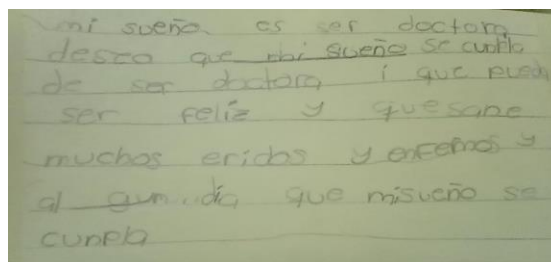 mi sueño es ser doctora
deseo que mi sueño se cunpla
de ser doctora i que pueda
ser feliz y quesane
muchos eridos y enfemos y
al gun día que misueño se
cunpla